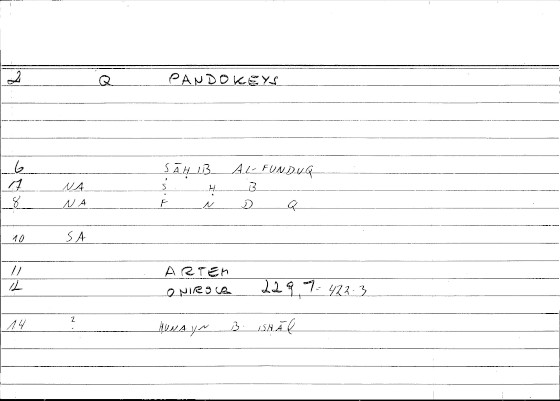 2 Q PANDOKEYS
6 ṢĀḤIB AL-FUNDUQ
7 NA Ṣ Ḥ B
8 NA F N D Q
10 SA
11 ARTEM
12 ONIROCR 229,7 = 422.3
14 ? ḤUNAYN B. ISḤĀQ